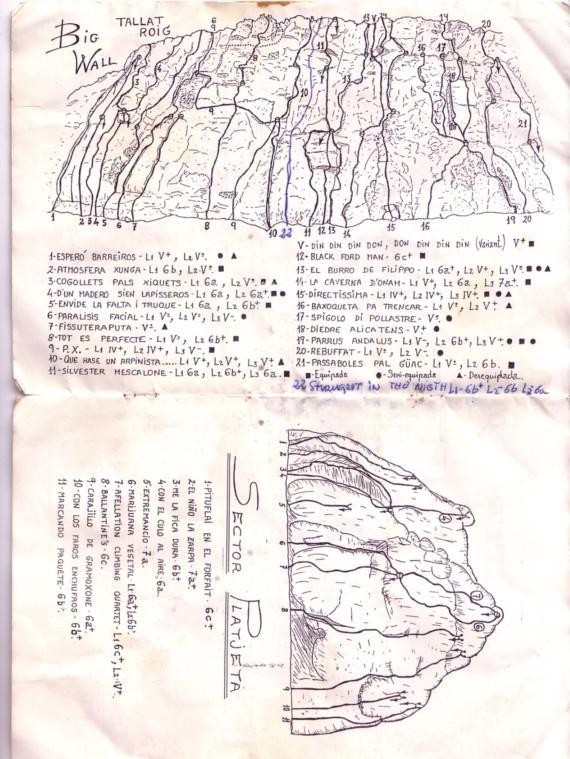 Big Wall
TALLAT ROIG
V- DIN DIN DIN DON, DON DIN DIN DIN (Variant) V+ ■
1-ESPERÓ BARREIROS - L1 V+, L2 Vº. ● ▲
2-ATMOSFERA XUNGA - L1 6b, L2-Vº. ■
3-COGOLLETS PALS XIQUETS - L1 6a, L2 Vº. ■ ▲
4-D'UN MADERO SIEN LAPISSEROS - L1 6a, L2 6a+. ■ ●
5-ENVIDE LA FALTA I TRUQUE - L1 6a, L2 6b+ ■
6-PARALISIS FACIAL - L1 Vº, L2 Vº, L3 V-. ●
7-FISSUTERAPUTA - Vº. ▲
8-TOT ES PERFECTE - L1 Vº, L2 6b+. ■
9-P.X. - L1 IV+, L2 IV+, L3 V-. ■
10-QUE HASE UN ARPINISTA.... L1 V+, L2 V+, L3 V+ ▲
11-SILVESTER MESCALONE - L1 6a, L2 6b+, L3 6a. ■
12-BLACK FORD MAN - 6c+ ■
13-EL BURRO DE FILIPPO - L1 6a+, L2 V+, L3 Vº. ■ ● ▲
14-LA CAVERNA D'ONAM - L1 V+, L2 6a, L3 7a+. ■
15-DIRECTÍSSIMA - L1 IV+, L2 IV+, L3 IV+. ■ ● ▲
16-BAXOQUETA PA TRENCAR - L1 Vº, L2 V+ ▲
17-SPIGOLO DI POLLASTRE - Vº. ●
18-DIEDRE ALICATENS - V+ ●
19-PARRUS ANDALUS - L1 V-, L2 6b+, L3 V+. ● ■ ●
20-REBUFFAT - L1 Vº, L2 V-. ●
21-PASSABOLES PAL GÜAC - L1 Vº, L2 6b. ■
■-Equipada ●-Semi-equipada ▲-Desequipada.
22 Strangers IN THE NIGTH L1-6b+ L2 6b L3 6a
SECTOR PLATJETA
1-PITUFLAI EN EL FORFAIT - 6c+
2-EL NIÑO LA ZARPA - 7a+
3-ME LA FICA DURA - 6b+
4-CON EL CULO AL AIRE - 6a.
5-EXTREMANCIO - 7a.
6-MARIJUANA VEGETAL L1 6a+, L2 6b+.
7-AFELLATION CLIMBING QUARTET - L1 6c+, L2-IV+.
8-BALLANTINE'S - 6c.
9-CARAJILLO DE GRAMOXONE - 6a+.
10-CON LOS FAROS ENCHUFAOS - 6b+.
11-MARCANDO PAQUETE - 6b+.